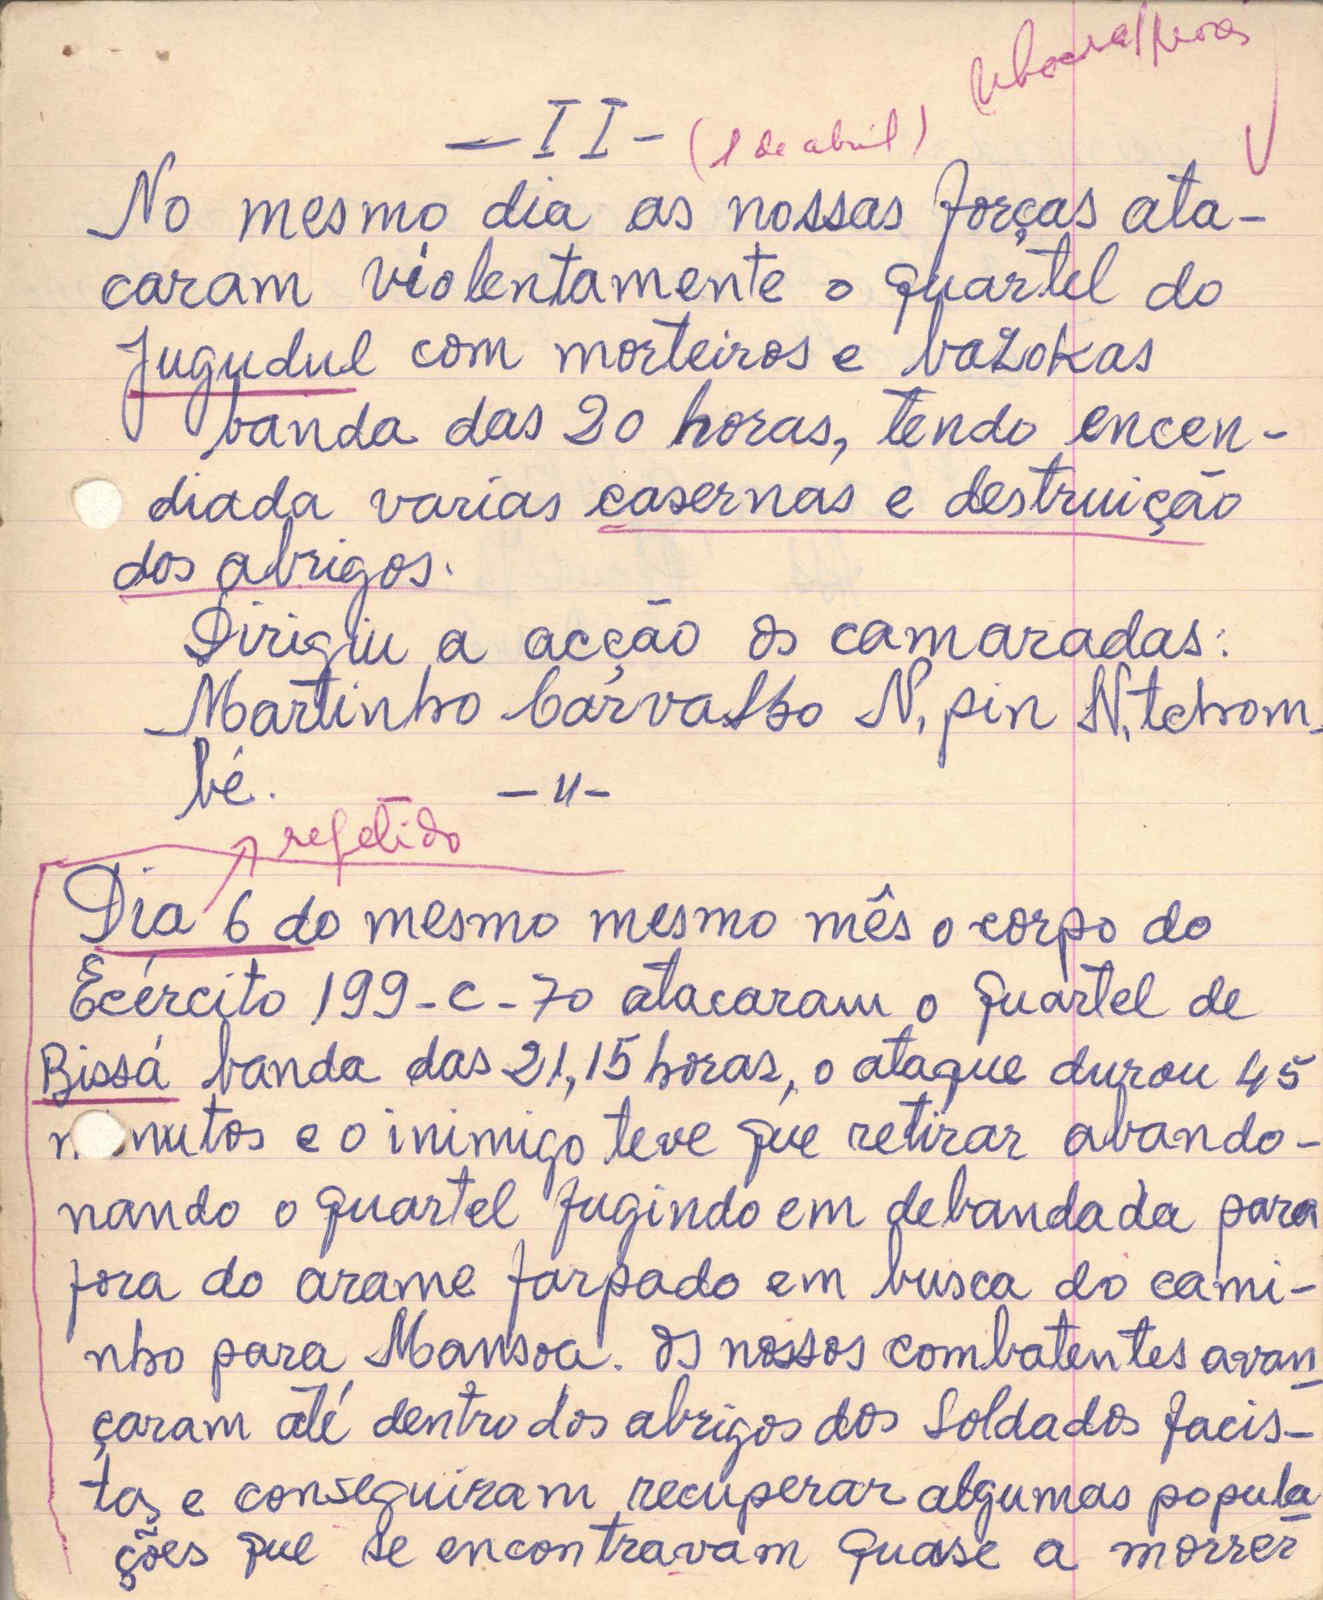 — I I — (1 de abril)
No mesmo dia as nossas forças ata-
caram violentamente o quartel do
Jugudul com morteiros e bazokas
banda das 20 horas, tendo encen-
diada varias casernas e destruição
dos abrigos.
Dirigiu a acção os camaradas:
Martinho Carvalho N, pin N, tchom_
bé. — 11 —
repetido
Dia 6 do mesmo mesmo mês o corpo do
Ecército 199-C-70 atacaram o quartel de
Bissá banda das 21,15 horas, o ataque durou 45
nutos e o inimigo teve que retirar abando-
nando o quartel fugindo em debandada para
fora do arame farpado em busca do cami-
nho para Mansoa. Os nossos combatentes avan
çaram até dentro dos abrigos dos Soldados facis-
tas e conseguiram recuperar algumas popula
ções que se encontravam quase a morrer